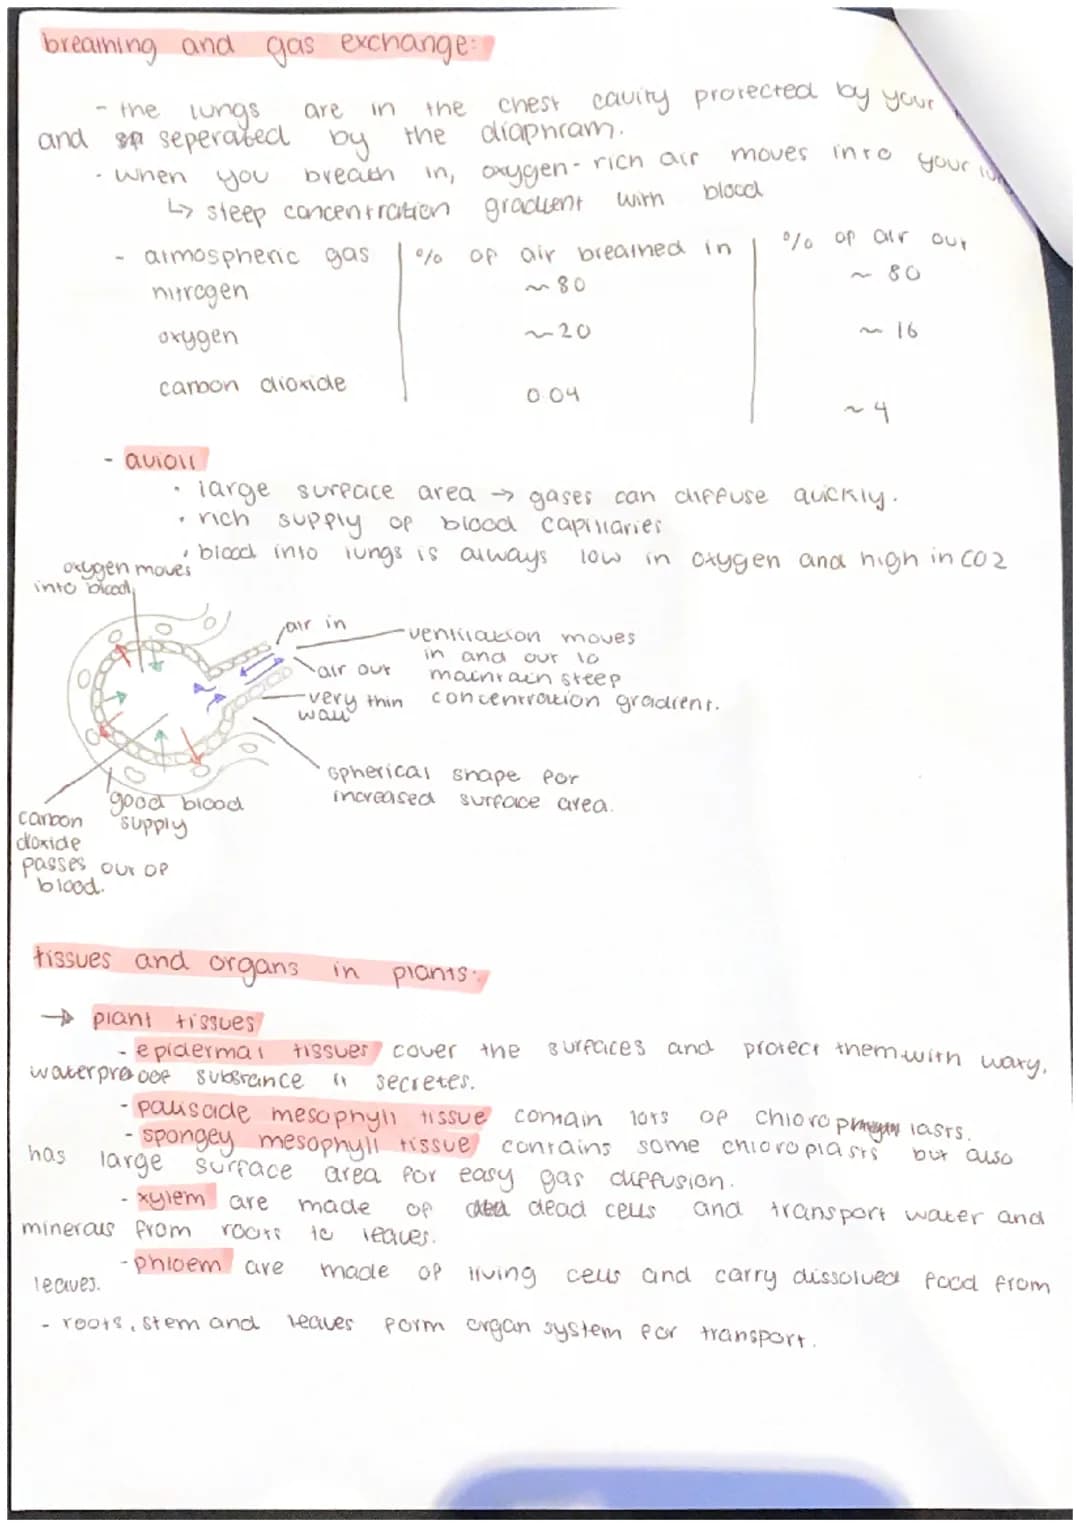 breathing and gas exchange:
- the lungs are in the chest cavity protected by your
and seperated by the diaphram.
- when you breath in, oxygen-rich air moves into your
↳ steep concentration gradient with blood
- atmospheric gas | % of air breathed in | % of air out
nitrogen ~80 ~80
oxygen ~20 ~16
carbon dioxide 0.04 ~4
- avioli
• large surface area → gases can diffuse quickly.
• rich supply of blood capillaries
• blood into lungs is always low in oxygen and high in CO2
oxygen moves
into blood
air in
air out
ventilation moves
in and out to
maintain steep
concentration gradient.
very thin
wall
spherical shape for
increased surface area.
good blood
supply
carbon
dioxide
passes out of
blood.
tissues and organs in plants:
→ plant tissues
- epidermal tissues cover the surfaces and protect them with waxy,
waterproof substance it secretes.
- palisade mesophyll tissue contain lots of chloroplasts.
- spongey mesophyll tissue contains some chloroplasts but also
has large surface area for easy gas diffusion.
- xylem are made of dead cells and transport water and
minerals from roots to leaves.
- phloem are made of living cells and carry dissolved food from
leaves.
- roots, stem and leaves form organ system for transport.